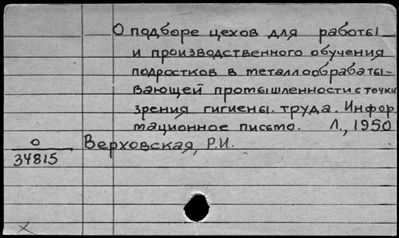 О подборе цехов для работы
и производственного обучения
подростков в металлообрабаты-
вающей промышленности с точки
зрения гигиены труда. Инфор.
мационное письмо. Л., 1950
О
34815
Верховская, Р.И.
х